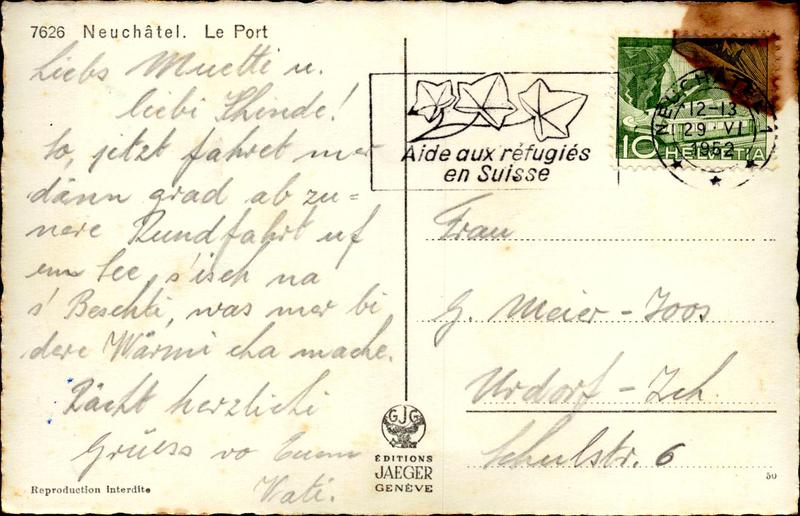 7626 Neuchâtel. Le Port
Liebs Muetti u.
liebi Chinde!
So, jetzt fahret mer
dänn grad ab zu=
nere Rundfahrt uf
em See, s'isch na
s' Beschti, was mer bi
dere Wärmi cha mache.
Rächt herzlichi
Grüess vo Euem
Vati.
Reproduction interdite
Aide aux réfugiés
en Suisse
NEUCHATEL 1
12-13
29·VI
1952
10 HELVETIA
Frau
G. Meier-Joos
Urdorf-Zch
Schulstr. 6
GJG
ÉDITIONS
JAEGER
GENÈVE
50